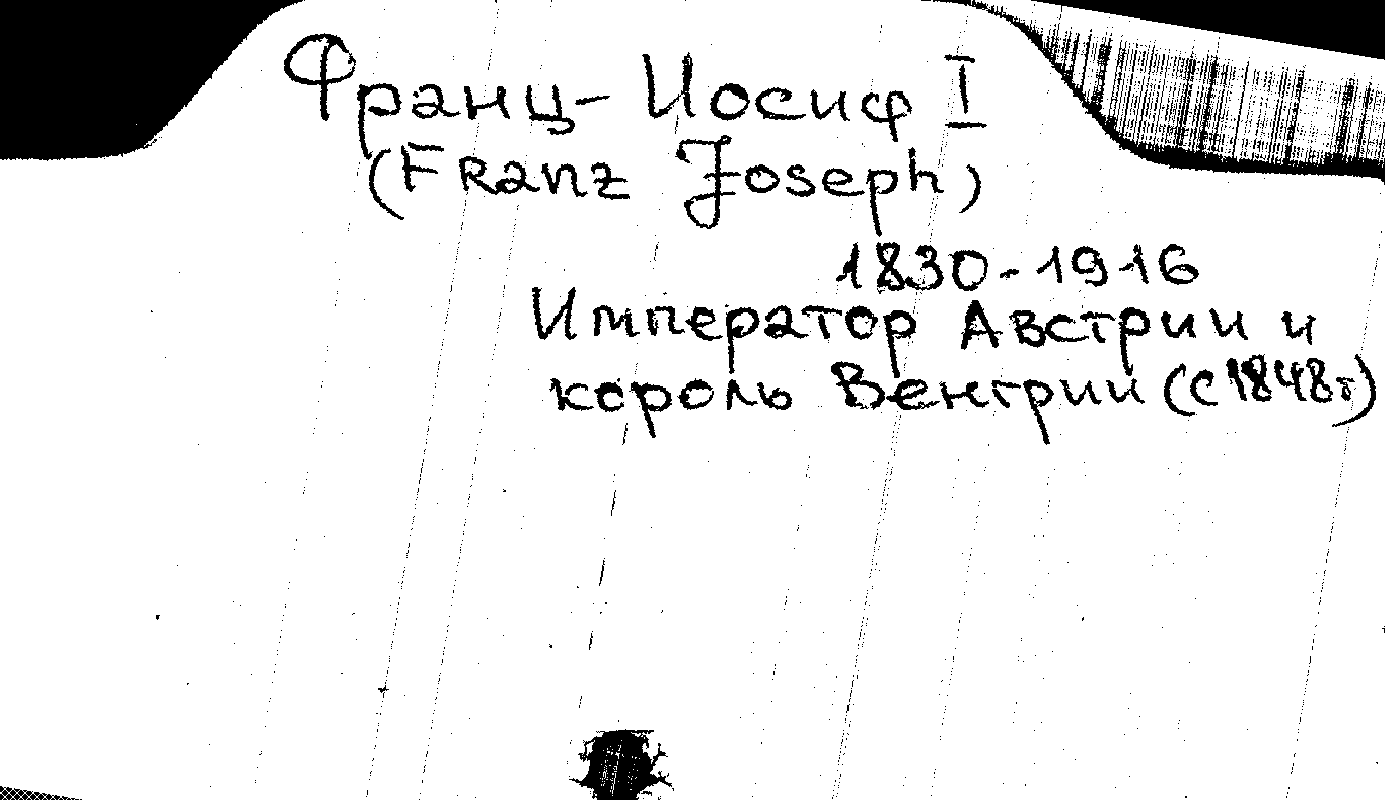 Франц-Иосиф I
(Franz Joseph)
1830-1916
Император Австрии и
король Венгрии (с 1848г)